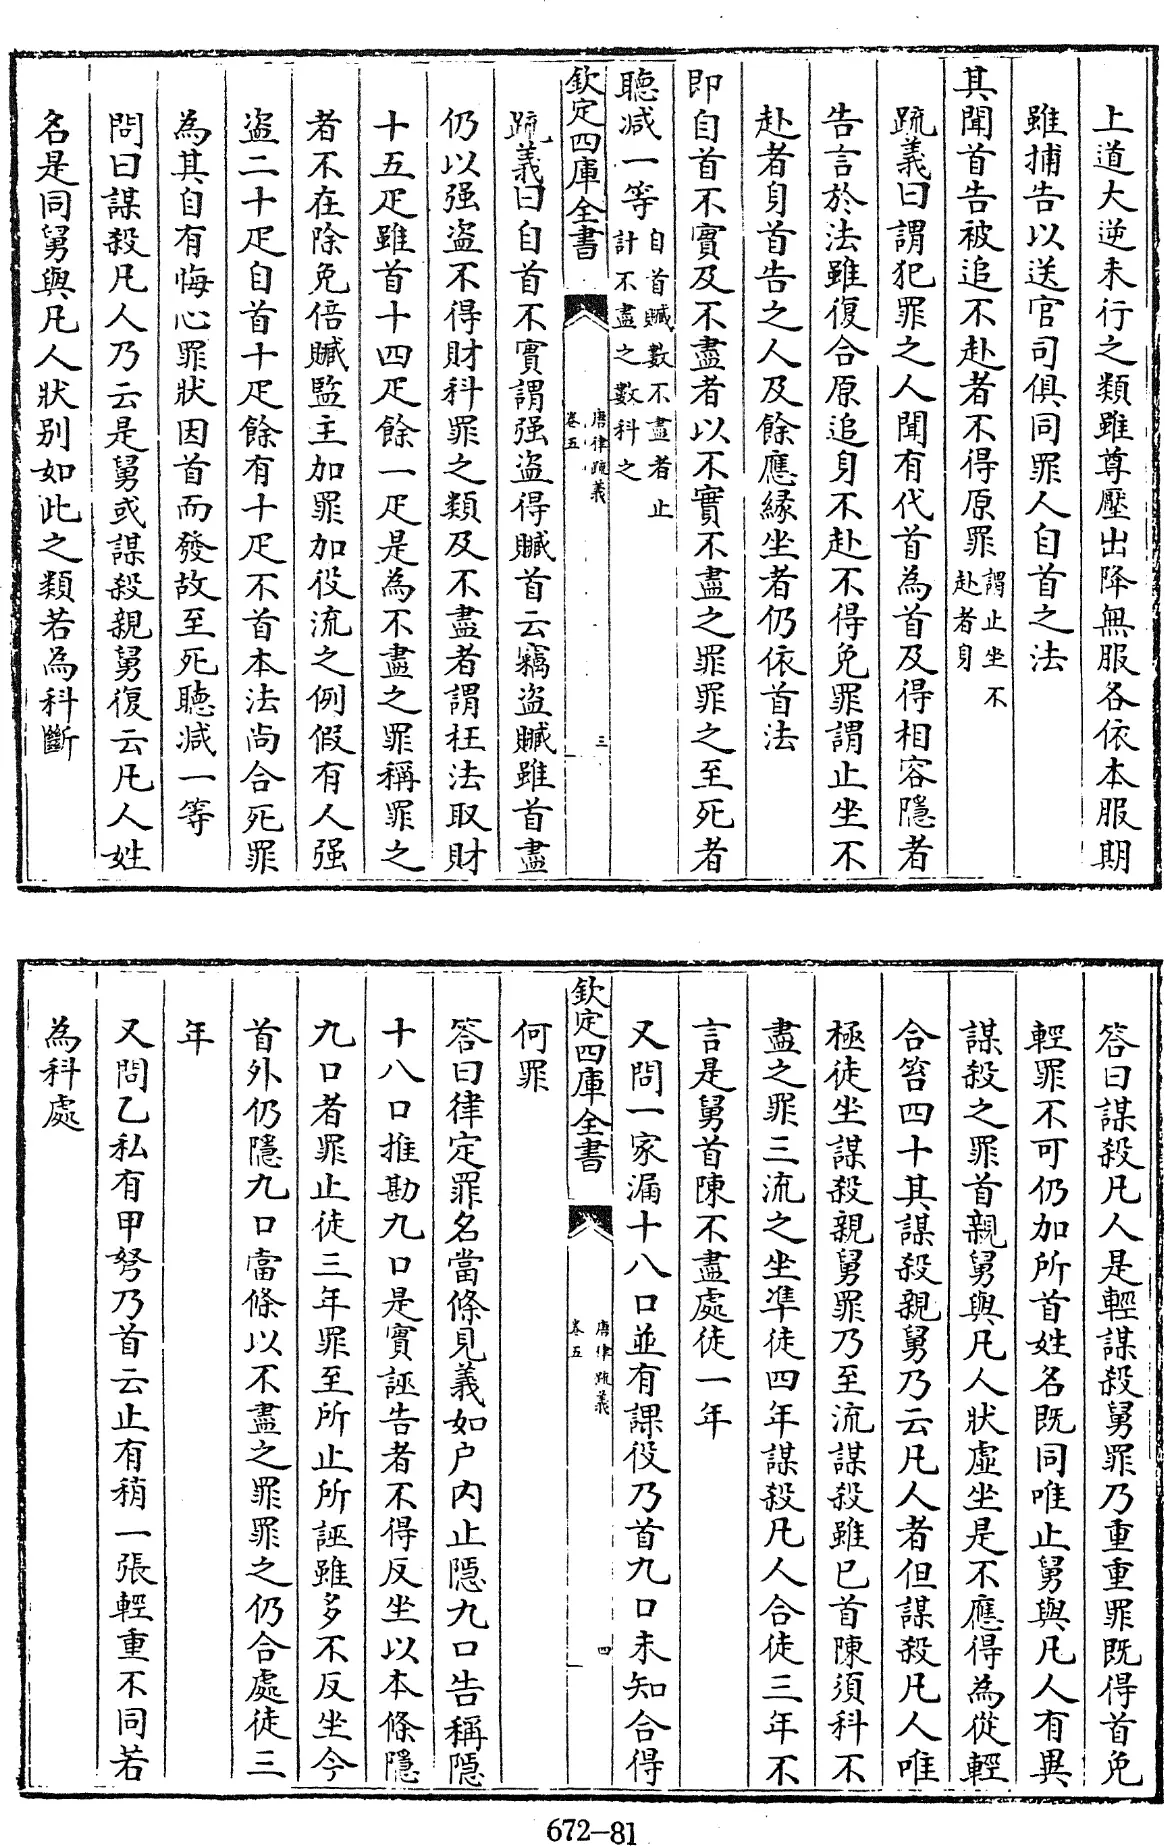 上道大逆未行之類雖尊壓出降無服各依本服期
雖捕告以送官司俱同罪人自首之法
其聞首告被追不赴者不得原罪謂止坐不赴者身
疏義曰謂犯罪之人聞有代首為首及得相容隱者
告言於法雖復合原追身不赴不得免罪謂止坐不
赴者身首告之人及餘應緣坐者仍依首法
即自首不實及不盡者以不實不盡之罪罪之至死者
聽减一等自首贓數不盡者止計不盡之數科之
欽定四庫全書
唐律疏義
卷五
三
疏義曰自首不實謂强盜得贓首云竊盜贓雖首盡
仍以强盜不得財科罪之類及不盡者謂枉法取財
十五疋雖首十四疋餘一疋是為不盡之罪稱罪之
者不在除免倍贓監主加罪加役流之例假有人强
盜二十疋自首十疋餘有十疋不首本法尚合死罪
為其自有悔心罪狀因首而發故至死聽减一等
問曰謀殺凡人乃云是舅或謀殺親舅復云凡人姓
名是同舅與凡人狀别如此之類若為科斷
答曰謀殺凡人是輕謀殺舅罪乃重重罪既得首免
輕罪不可仍加所首姓名既同唯止舅與凡人有異
謀殺之罪首親舅與凡人狀虛坐是不應得為從輕
合笞四十其謀殺親舅乃云凡人者但謀殺凡人唯
極徒坐謀殺親舅罪乃至流謀殺雖已首陳須科不
盡之罪三流之坐凖徒四年謀殺凡人合徒三年不
言是舅首陳不盡處徒一年
又問一家漏十八口並有課役乃首九口未知合得
欽定四庫全書
唐律疏義
卷五
四
何罪
答曰律定罪名當條見義如户内止隱九口告稱隱
十八口推勘九口是實誣告者不得反坐以本條隱
九口者罪止徒三年罪至所止所誣雖多不反坐今
首外仍隱九口當條以不盡之罪罪之仍合處徒三
年
又問乙私有甲弩乃首云止有矟一張輕重不同若
為科處
672-81